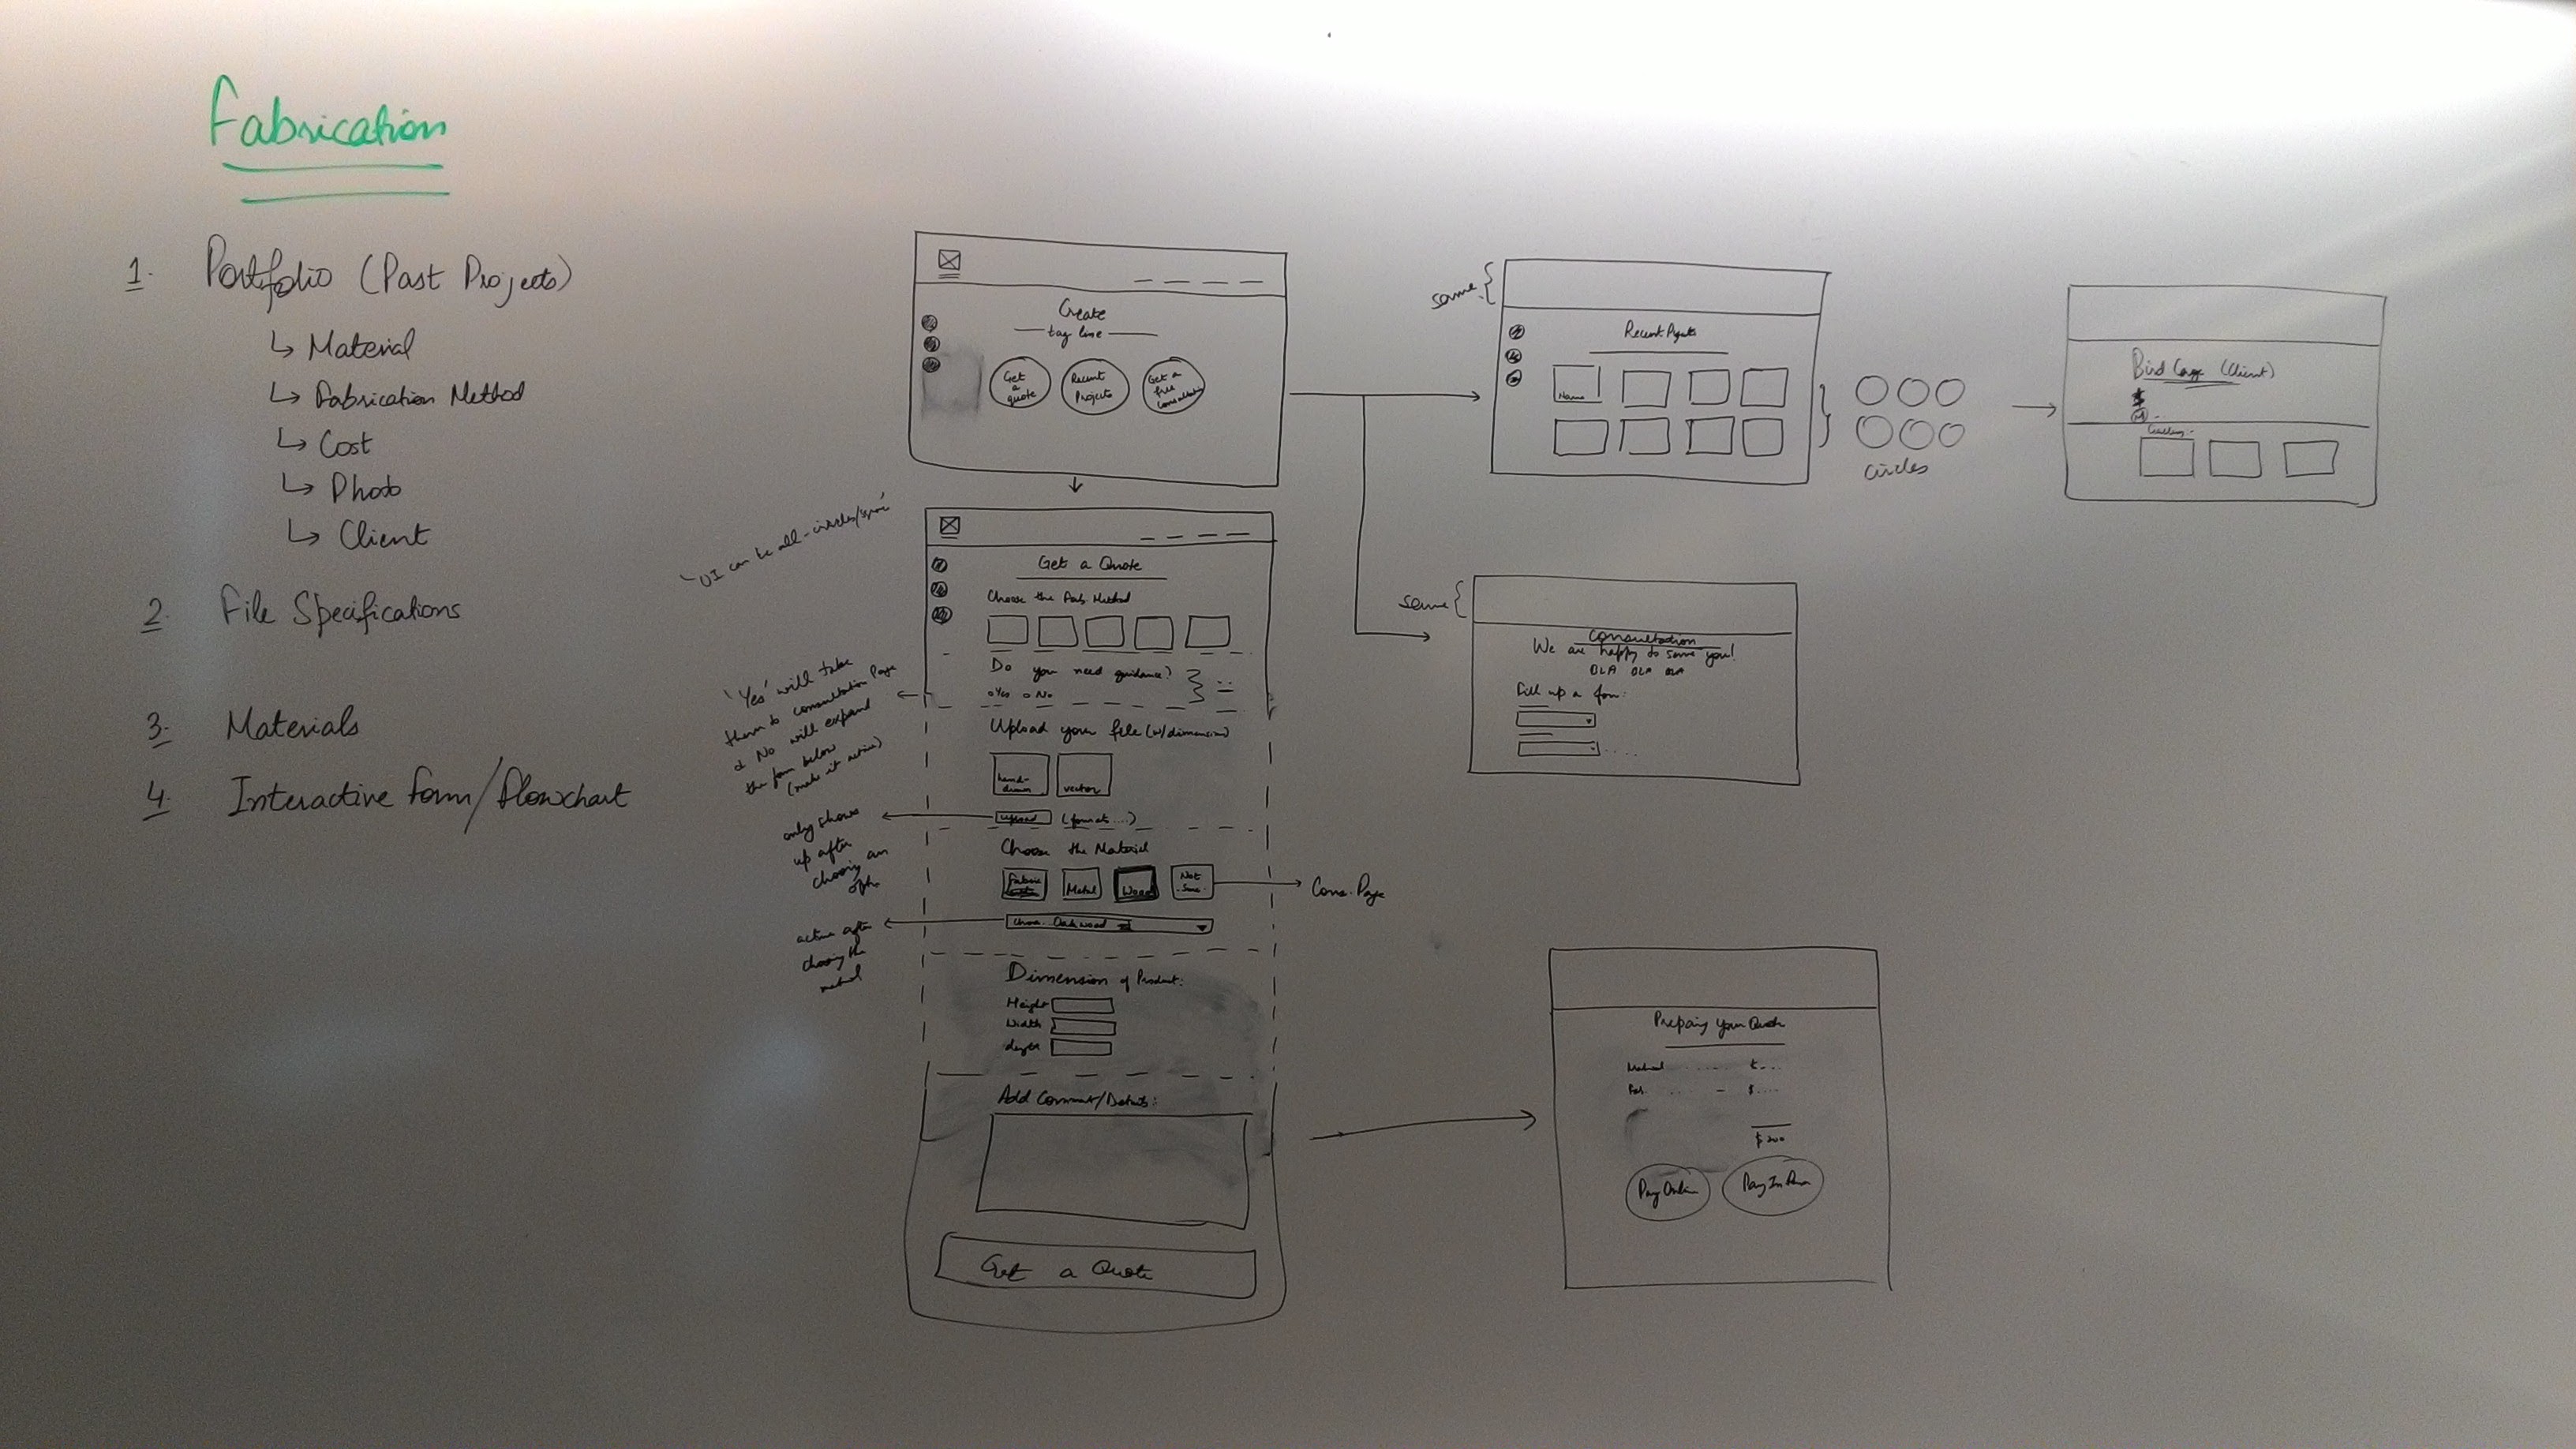 Fabrication
1. Portfolio (Past Projects)
↳ Material
↳ Fabrication Method
↳ Cost
↳ Photo
↳ Client
2. File Specifications
3. Materials
4. Interactive Form/Flowchart
Create
tag line
Get
a
quote
Recent
Projects
Get a
free
Consultation
'UI can be all-circles/
Get a Quote
Choose the Fab. Method
Do you need guidance?
Yes No
'Yes' will take
them to consultation Page
& No will expand
the form below
(make it active)
Upload your file (w/dimension)
hand-
drawn
vector
upload (formats....)
only shows
up after
choosing an
optn
Choose the Material
Fabric
Metal
Wood
Not
Sure
Cons. Page
Oakwood
active after
choosing the
Dimension of Product:
Height
Width
Add Comment/Details:
Get a Quote
same
Recent Projects
Name
circles
Bird Cage (Client)
$
M
same
Consultation
We are happy to serve you!
BLA BLA BLA
Fill up a form:
Preparing Your Quote
Material
Fab. $....
$200
Pay Online
Pay In Person